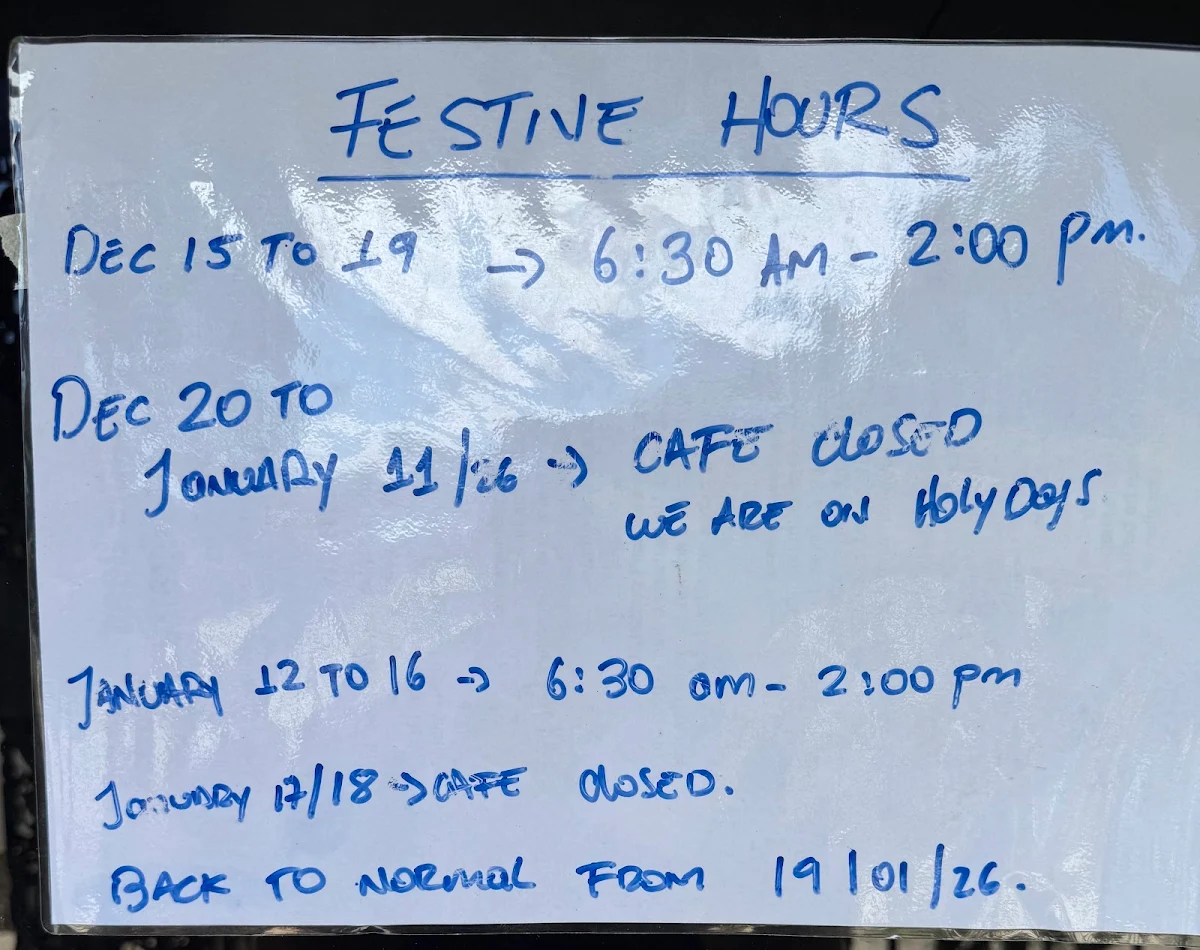 FESTIVE HOURS
DEC 15 TO 19 → 6:30 AM - 2:00 PM.
DEC 20 TO
JANUARY 11/26 → CAFE CLOSED
WE ARE ON HOLYDAYS
JANUARY 12 TO 16 → 6:30 am - 2:00 pm
JANUARY 17/18 → CAFE CLOSED.
BACK TO NORMAL FROM 19/01/26.